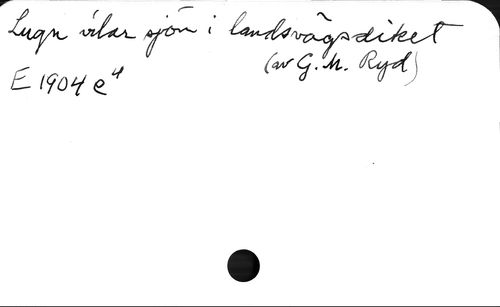 Lugn vilar sjön i landsvägsdiket
(av G. M. Ryd)
E 1904 e⁴